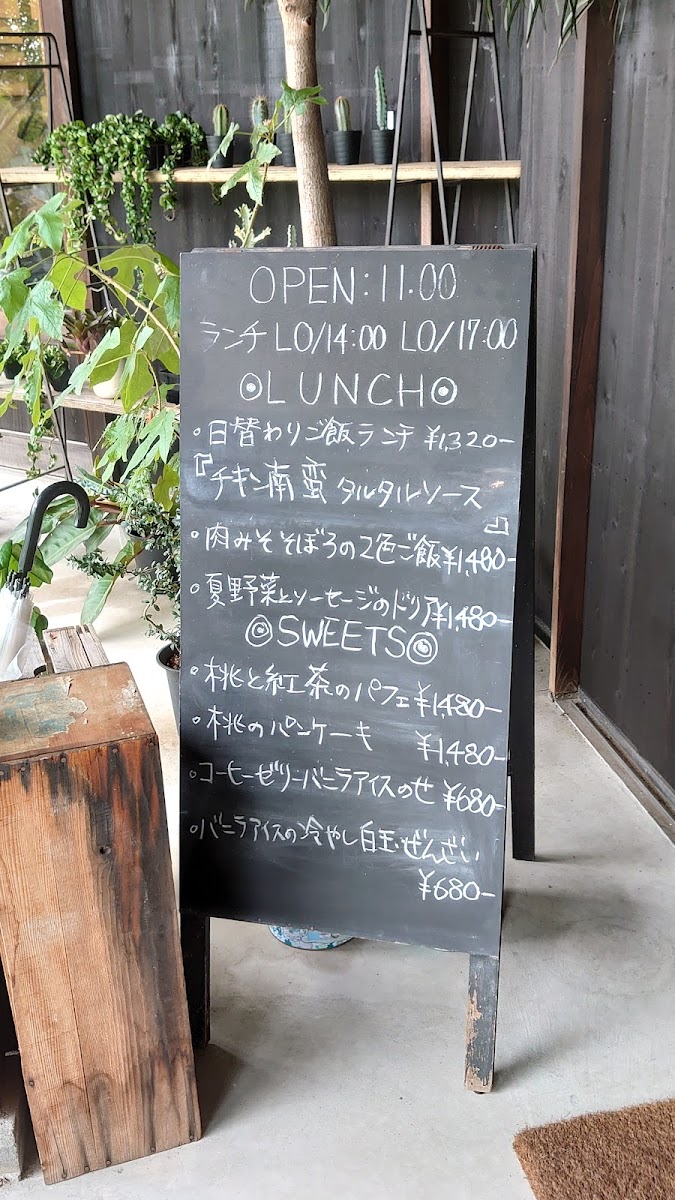 OPEN:11.00
ランチ LO/14:00 LO/17:00
◎LUNCH◎
・日替わりご飯ランチ ¥1,320-
『チキン南蛮 タルタルソース
』
・肉みそそぼろの2色ご飯¥1,480-
・夏野菜とソーセージのドリア¥1,480-
◎SWEETS◎
・桃と紅茶のパフェ¥1,480-
・桃のパンケーキ ¥1,480-
・コーヒーゼリーバニラアイスのせ ¥680-
・バニラアイスの冷やし白玉ぜんざい
¥680-